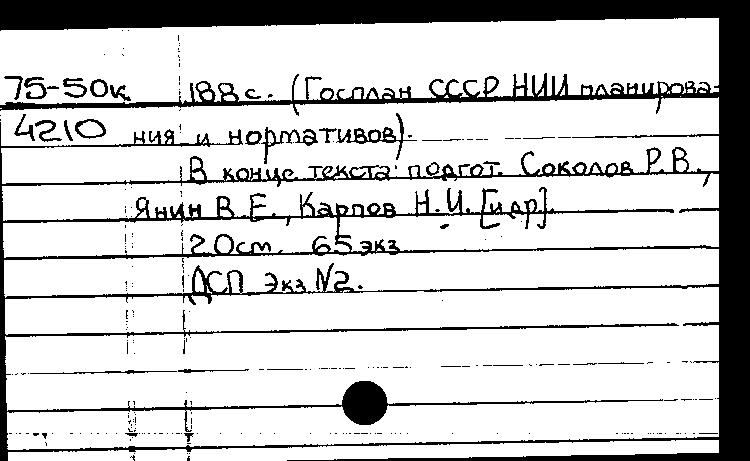 75-50к 188 с. (Госплан СССР НИИ планирова-
4210 ния и нормативов).
В конце текста: подгот. Соколов Р.В.,
Янин В.Е., Карпов Н.И. [и др].
20см. 65 экз
ДСП Экз №2.